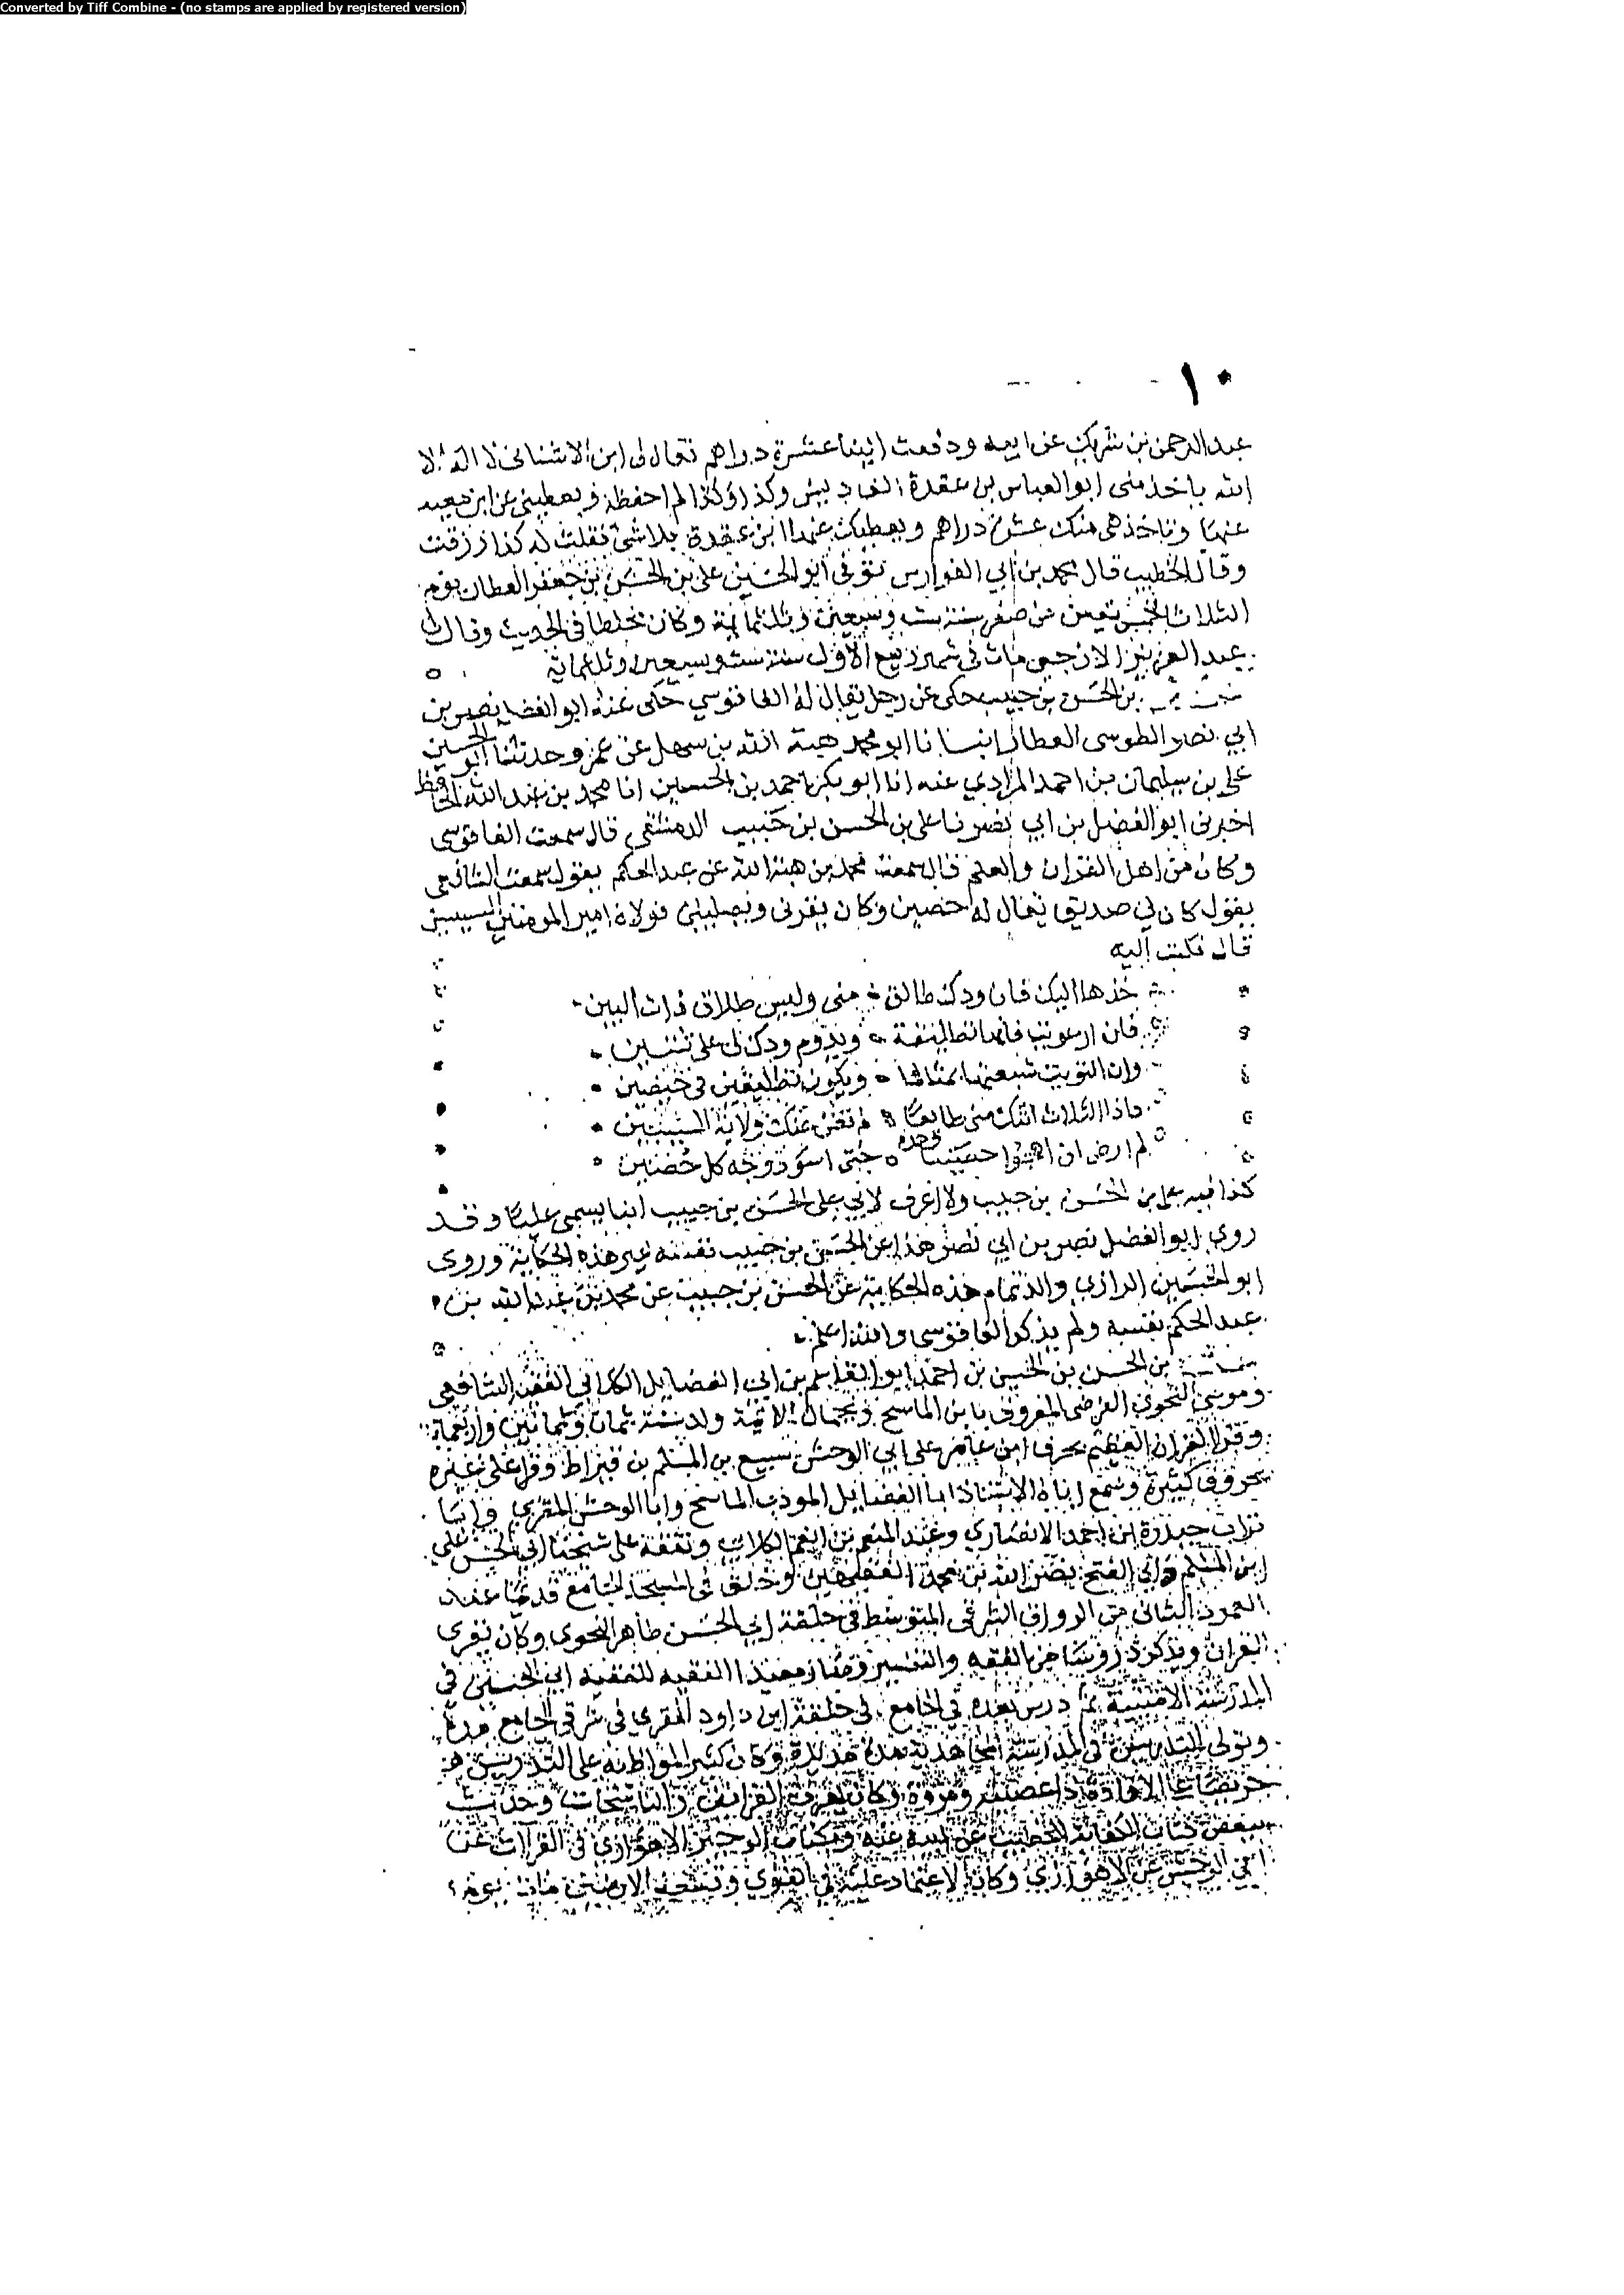 Converted by Tiff Combine - (no stamps are applied by registered version)
١٠
عبد الرحمن بن شريك عن ابيه ودفعت الينا عشرة دراهم فقال لى ابن الاشنانى لا اله الا
الله ياخذ منى ابو العباس بن عقدة وكذا وكذا لم احفظه ويعطينى عن ابن سعيد
عنهما وتاخذ هى منك عشرة دراهم ويعطيك عنهما ابن عقدة بلا شى فقلت له كذا رزقت
وقال الخطيب قال محمد بن ابي الفوارس توفى ابو الحسين على بن الحسن بن جعفر العطار يوم
الثلاث لخمس بقين من صفر سنة ست وسبعين وثلثمائة وكان مخلطا فى الحديث وقال
عبد العزيز الازجى مات فى شهر ربيع الاول سنة ست وسبعين وثلثمائة
بن الحسن بن حبيب حكى عن رجل يقال له الفاقوسي حكى عنه ابو الفضل نصر بن
ابي نصر الطوسى العطار انبا نا ابو محمد هبة الله بن سهل بن عمر وحدثنا ابو الحسين
على بن سليمان بن احمد المرادي عنه انا ابو بكر احمد بن الحسين انا محمد بن عبد الله الحافظ
اخبرنى ابو الفضل بن ابي نصر نا على بن الحسن بن حبيب الدمشقى قال سمعت الفاقوسى
وكان من اهل القران والعلم قال سمعت محمد بن عبد الله بن عبد الحكم يقول سمعت الشافعى
يقول كان لي صديق يقال له حصين وكان يبرنى ويصلينى فولاه امير المومنين السيبين
قال فكتبت اليه
خذها اليك فان ودك طالق منى وليس طلاق ذات البين
فان ارعويت فانها تطليقة ويدوم ودك لى على ثنتين
وان التويت شفعتها بمثالها ويكون تطليقين فى حيضين
فاذا الثلاث اتتك منى طايعا لم تغن عنك ولاية السيبين
لم ارض ان اهجوا حصينا وحده حتى اسود وجه كل حصين
كذا فيه على بن الحسن بن حبيب ولا اعرف لابي على الحسن بن حبيب ابنا يسمى عليا وقد
روى ابو الفضل نصر بن ابي نصر هذا عن الحسن بن حبيب نفسه غير هذه الحكاية وروى
ابو الحسين الرازي والد تمام هذه الحكاية عن الحسن بن حبيب عن محمد بن عبد الله بن
عبد الحكم نفسه ولم يذكر الفاقوسى والله اعلم
بن الحسن بن الحسن بن احمد ابو القاسم بن ابى الفضايل الكلابي الفقيه الشافعى
النحوي الفرضى المعروف بابن الماسح وجمال الايمة ولد سنة ثمان وثمانين واربعماية
وقرا القران العظيم بحرف ابن عامر على ابي الوحش سبيع بن المسلم بن قيراط وقرا على غيره
بحروف كثيرة وسمع اباه الاستاذ ابا الفضايل المودب الماسح وابا الوحش المقري وابا
تراب حيدرة ابن احمد الانصاري وعبد المنعم بن الغمر الكلابي وتفقه على شيخنا ابي الحسن على
ابن المسلم وابي الفتح نصر الله بن محمد الفقيهين وحلق فى المسجد الجامع قديما عند
العمود الثانى من الرواق الشرقى المتوسط فى حلقة ابي الحسن طاهر النحوى وكان يقرى
القران ويذكر دروسا من الفقه والتفسير وصار معيدا للفقيه ابي الحسن فى
المدرسة الامينية ثم درس بعده فى الجامع فى حلقة ابن داود المقري فى شرقى الجامع مدة
وتولى التدريس فى المدرسة المجاهدية مدة مديدة وكان كثير المواظبة على التدريس
حريصا على الافادة ذا عصبية ومروة وكان يعرف الفرايض والمناسخات وحدث
ببعض كتاب الكفاية للخطيب عن ابيه عنه وبكتاب الوجيز للاهوازي فى القرآت عن
ابي الوحش عن الاهوازي وكان الاعتماد عليه فى الفتوي وقسمة الارضين مات يوم